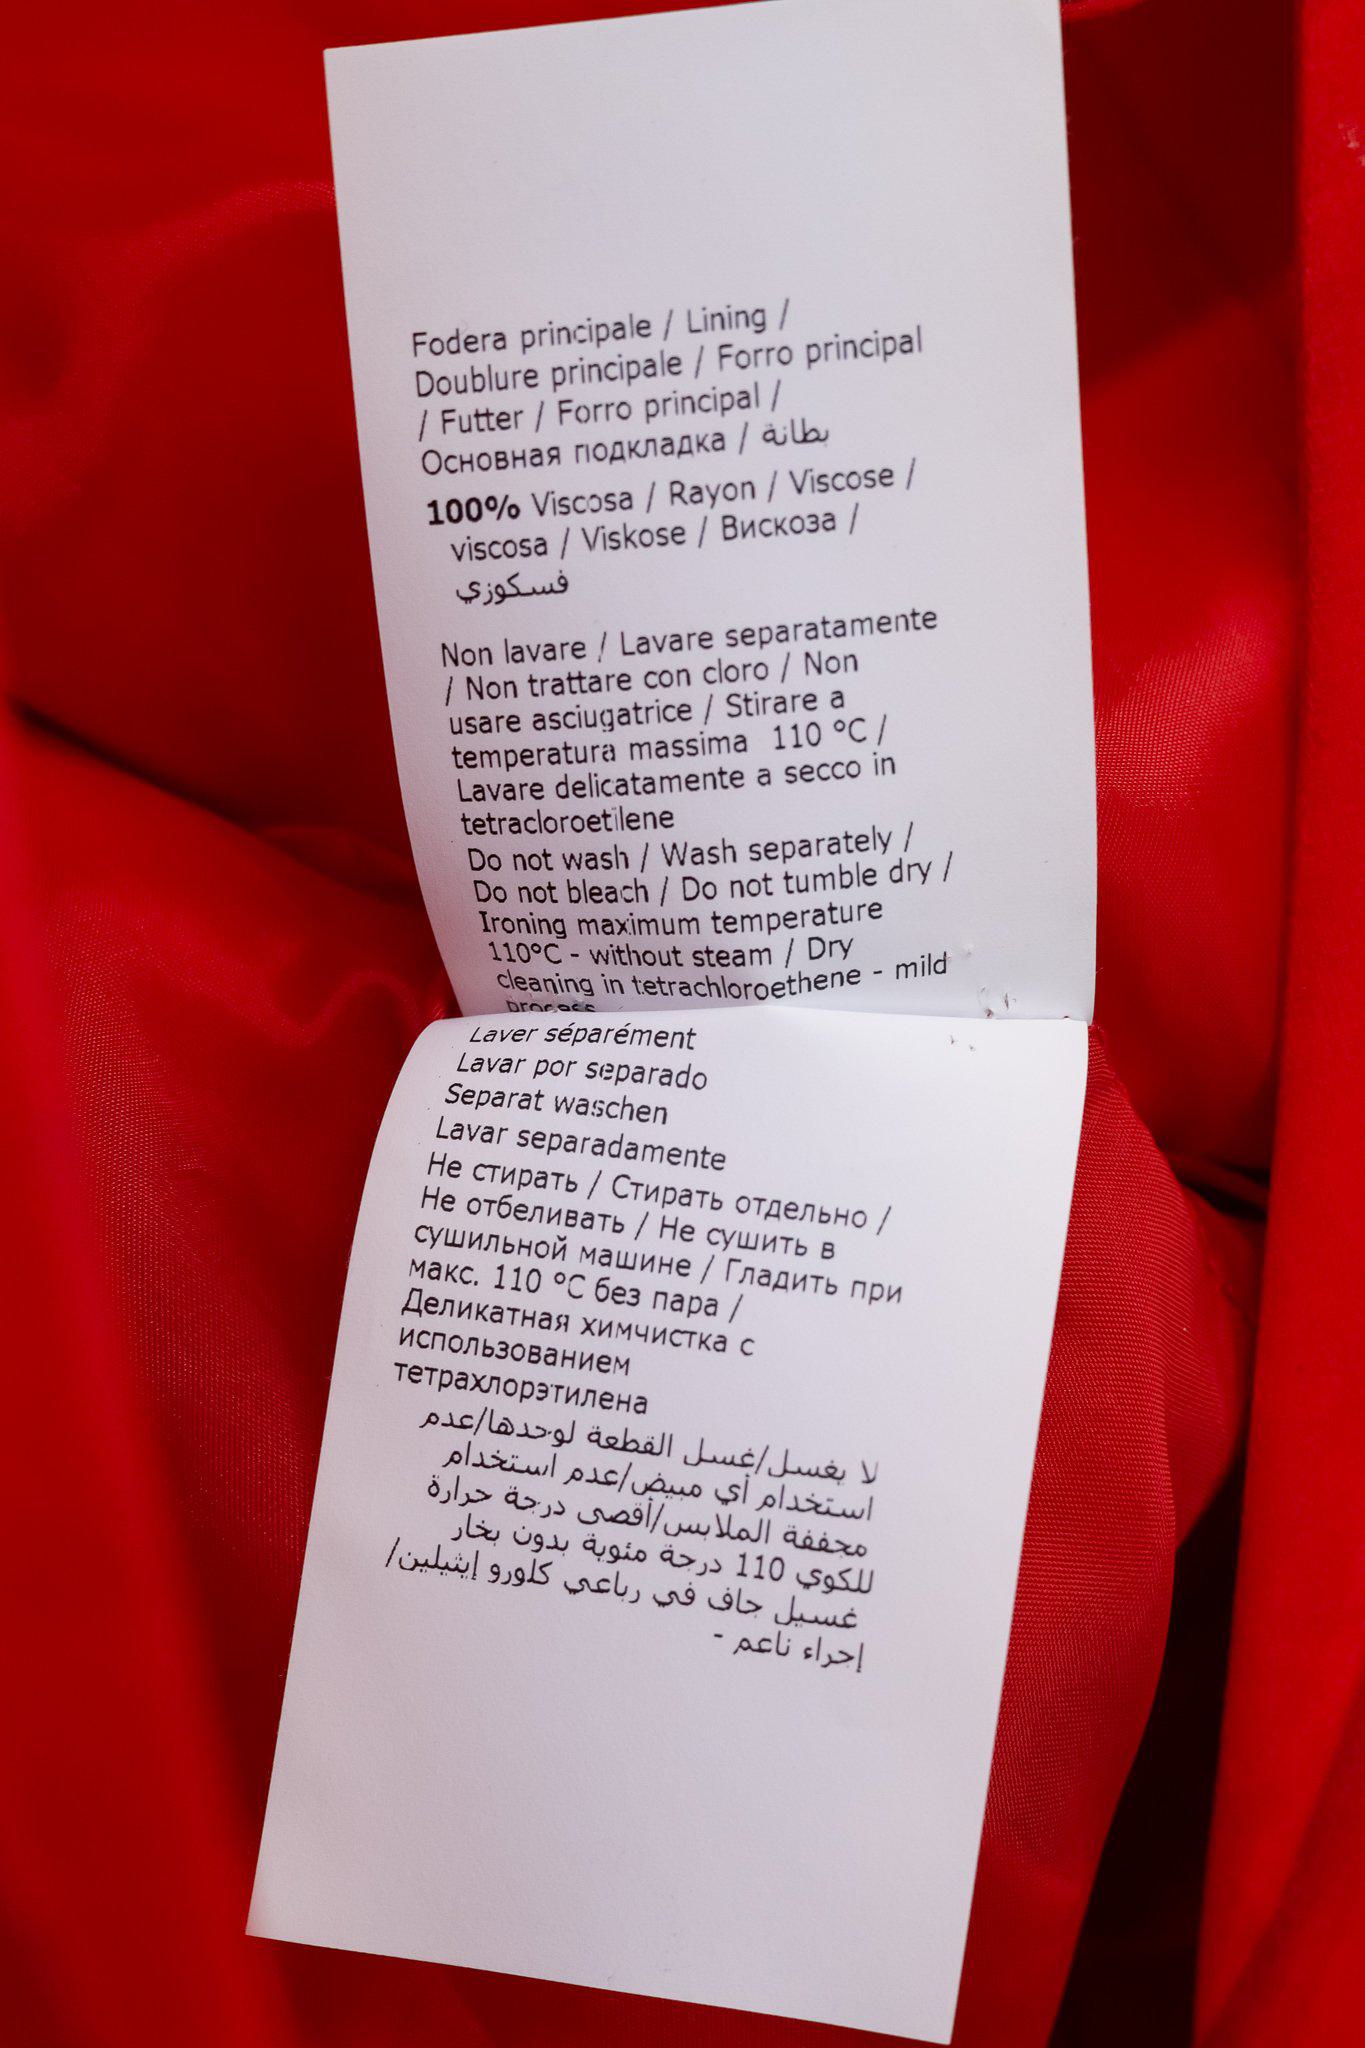 Fodera principale / Lining /
Doublure principale / Forro principal
/ Futter / Forro principal /
Основная подкладка / بطانة
100% Viscosa / Rayon / Viscose /
viscosa / Viskose / Вискоза /
فسكوزي
Non lavare / Lavare separatamente
/ Non trattare con cloro / Non
usare asciugatrice / Stirare a
temperatura massima 110 °C /
Lavare delicatamente a secco in
tetracloroetilene
Do not wash / Wash separately /
Do not bleach / Do not tumble dry /
Ironing maximum temperature
110°C - without steam / Dry
cleaning in tetrachloroethene - mild
process
Laver séparément
Lavar por separado
Separat waschen
Lavar separadamente
Не стирать / Стирать отдельно /
Не отбеливать / Не сушить в
сушильной машине / Гладить при
макс. 110 °C без пара /
Деликатная химчистка с
использованием
тетрахлорэтилена
لا يغسل/غسل القطعة لوحدها/عدم
استخدام أي مبيض/عدم استخدام
مجففة الملابس/أقصى درجة حرارة
للكوي 110 درجة مئوية بدون بخار
غسيل جاف في رباعي كلورو إيثيلين/
إجراء ناعم -